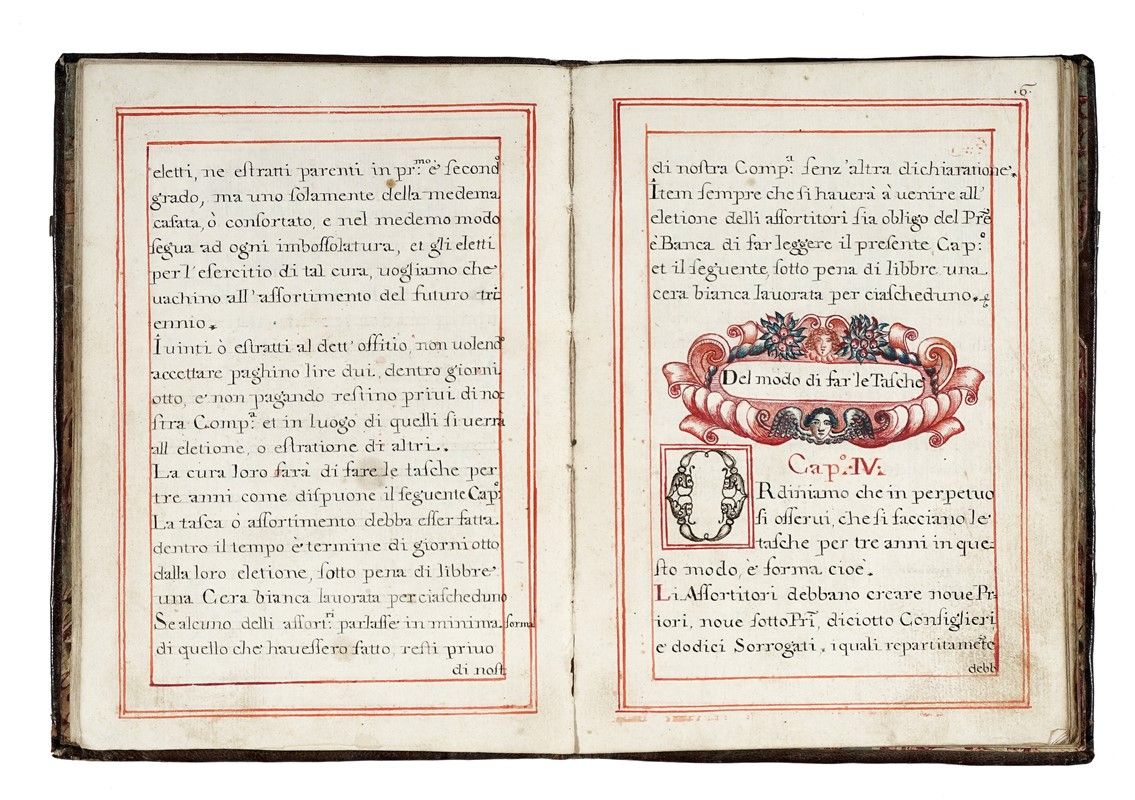 eletti, ne estratti parenti in pr.mo è secondo
grado, ma uno solamente della medema
casata, ò consortato, e nel medemo modo
segua ad ogni imbossolatura, et gli eletti
per l'esercitio di tal cura, uogliamo che
uachino all'assortimento del futuro tri
ennio.
I uinti ò estratti al dett' offitio, non uolendo
accettare paghino lire dui, dentro giorni
otto, e non pagando restino priui di no:
stra Comp.a et in luogo di quelli si uerrà
all eletione, o estratione di altri.
La cura loro sarà di fare le tasche per
tre anni come dispuone il seguente Cap:
La tasca ò assortimento debba esser fatta
dentro il tempo è termine di giorni otto
dalla loro eletione, sotto pena di libbre
una Cera bianca lauorata per ciascheduno
Se alcuno delli assort.ri parlasse in minima forma
di quello che hauessero fatto, resti priuo
di nost
.6.
di nostra Comp.a senz'altra dichiaratione.
Item sempre che si hauerà à uenire all'
eletione delli assortitori sia obligo del Prē
è Banca di far leggere il presente Cap:o
et il seguente, sotto pena di libbre una
cera bianca lauorata per ciascheduno.
Del modo di far le Tasche
Cap.o IV:
ORdiniamo che in perpetuo
si osserui, che si facciano le
tasche per tre anni in que:
sto modo, e forma cioè.
Li Assortitori debbano creare noue Pr:
iori, noue sotto Prī, diciotto Consiglieri
e dodici Sorrogati, i quali repartitamēte
debb